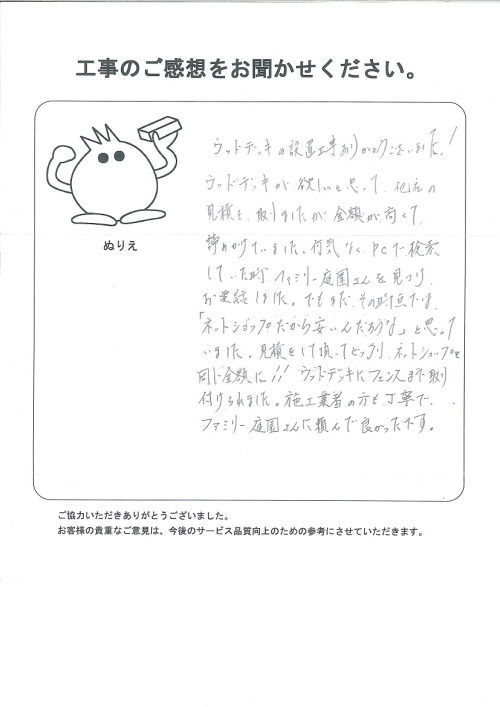 工事のご感想をお聞かせください。
ウッドデッキの設置工事ありがとうございました!
ウッドデッキが欲しいと思って、他店の
見積を、取りましたが金額が高くて、
諦めかけていました。何気なく、PCで検索
していた時、ファミリー庭園さんを見つけ、
お電話しました。でもまだ、その時点では、
「ネットショップだから安いんだろうな」と思って
いました。見積をして頂いてビックリ、ネットショップと
同じ金額に!! ウッドデッキにフェンスまで取り
付けられました。施工業者の方も丁寧で、
ファミリー庭園さんに頼んで良かったです。
ぬりえ
ご協力いただきありがとうございました。
お客様の貴重なご意見は、今後のサービス品質向上のための参考にさせていただきます。